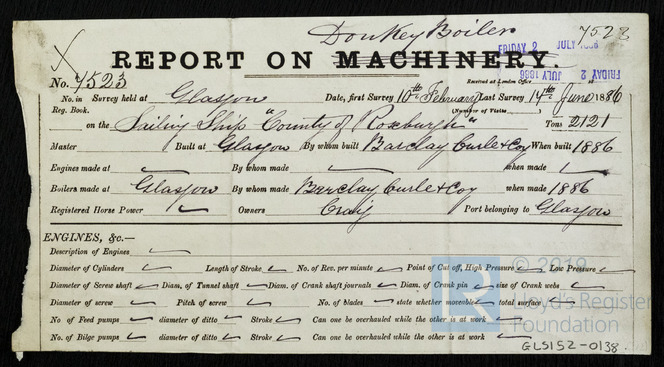 Donkey Boiler 7523
REPORT ON MACHINERY.
FRIDAY 2 JULY 1886
FRIDAY 2 JULY 1886
No. 7523 Received at London Office
No. in Survey held at Glasgow Date, first Survey 10th February Last Survey 14th June 1886
Reg. Book. (Number of Visits )
on the Sailing Ship "County of Roxburgh" Tons 2121
Master Built at Glasgow By whom built Barclay Curle & Coy When built 1886
Engines made at By whom made when made
Boilers made at Glasgow By whom made Barclay Curle & Coy when made 1886
Registered Horse Power Owners Craig Port belonging to Glasgow
ENGINES, &c.—
Description of Engines
Diameter of Cylinders Length of Stroke No. of Rev. per minute Point of Cut off, High Pressure Low Pressure
Diameter of Screw shaft Diam. of Tunnel shaft Diam. of Crank shaft journals Diam. of Crank pin size of Crank webs
Diameter of screw Pitch of screw No. of blades state whether moveable total surface
No. of Feed pumps diameter of ditto Stroke Can one be overhauled while the other is at work
No. of Bilge pumps diameter of ditto Stroke Can one be overhauled while the other is at work
© 2019
Lloyd's Register
Foundation
GLS152-0138